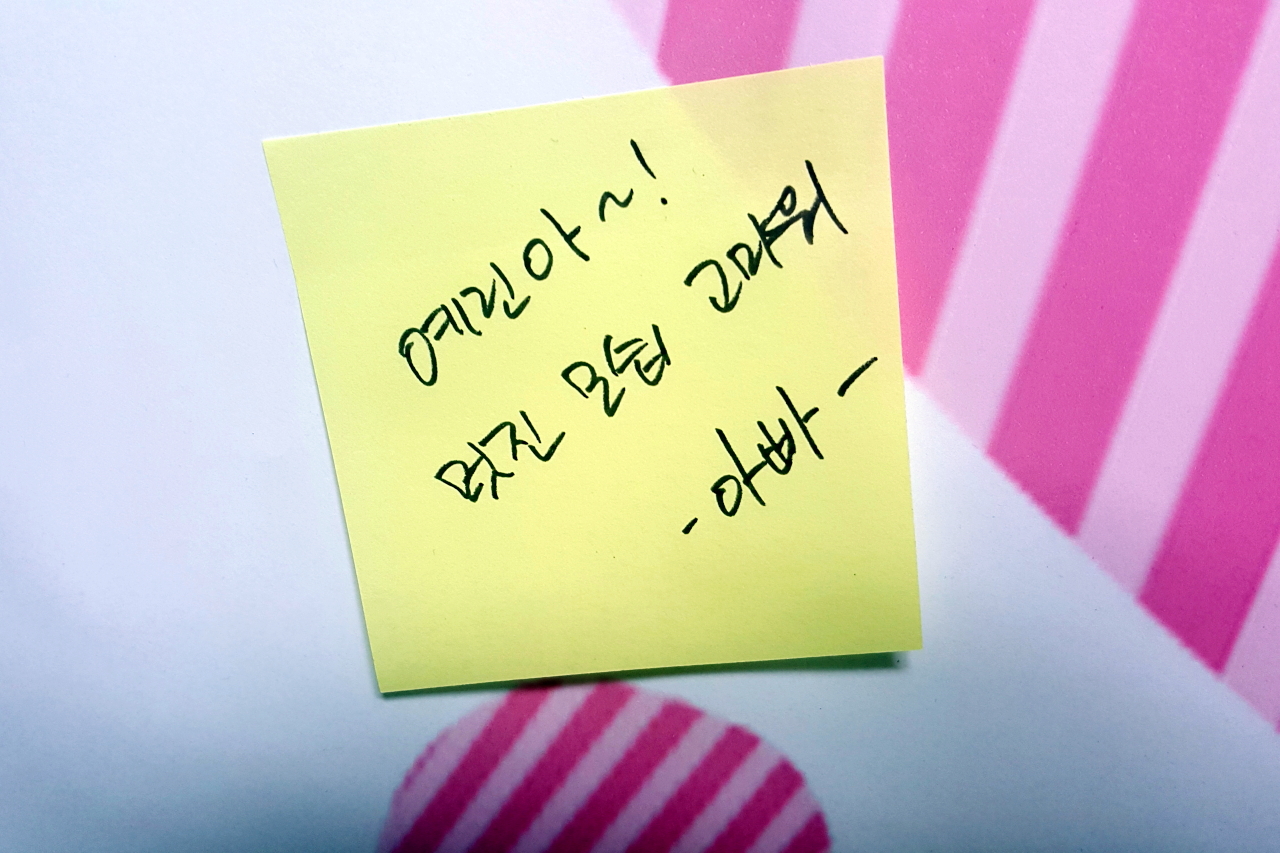 예린아~!
멋진 모습 고마워
- 아빠 -